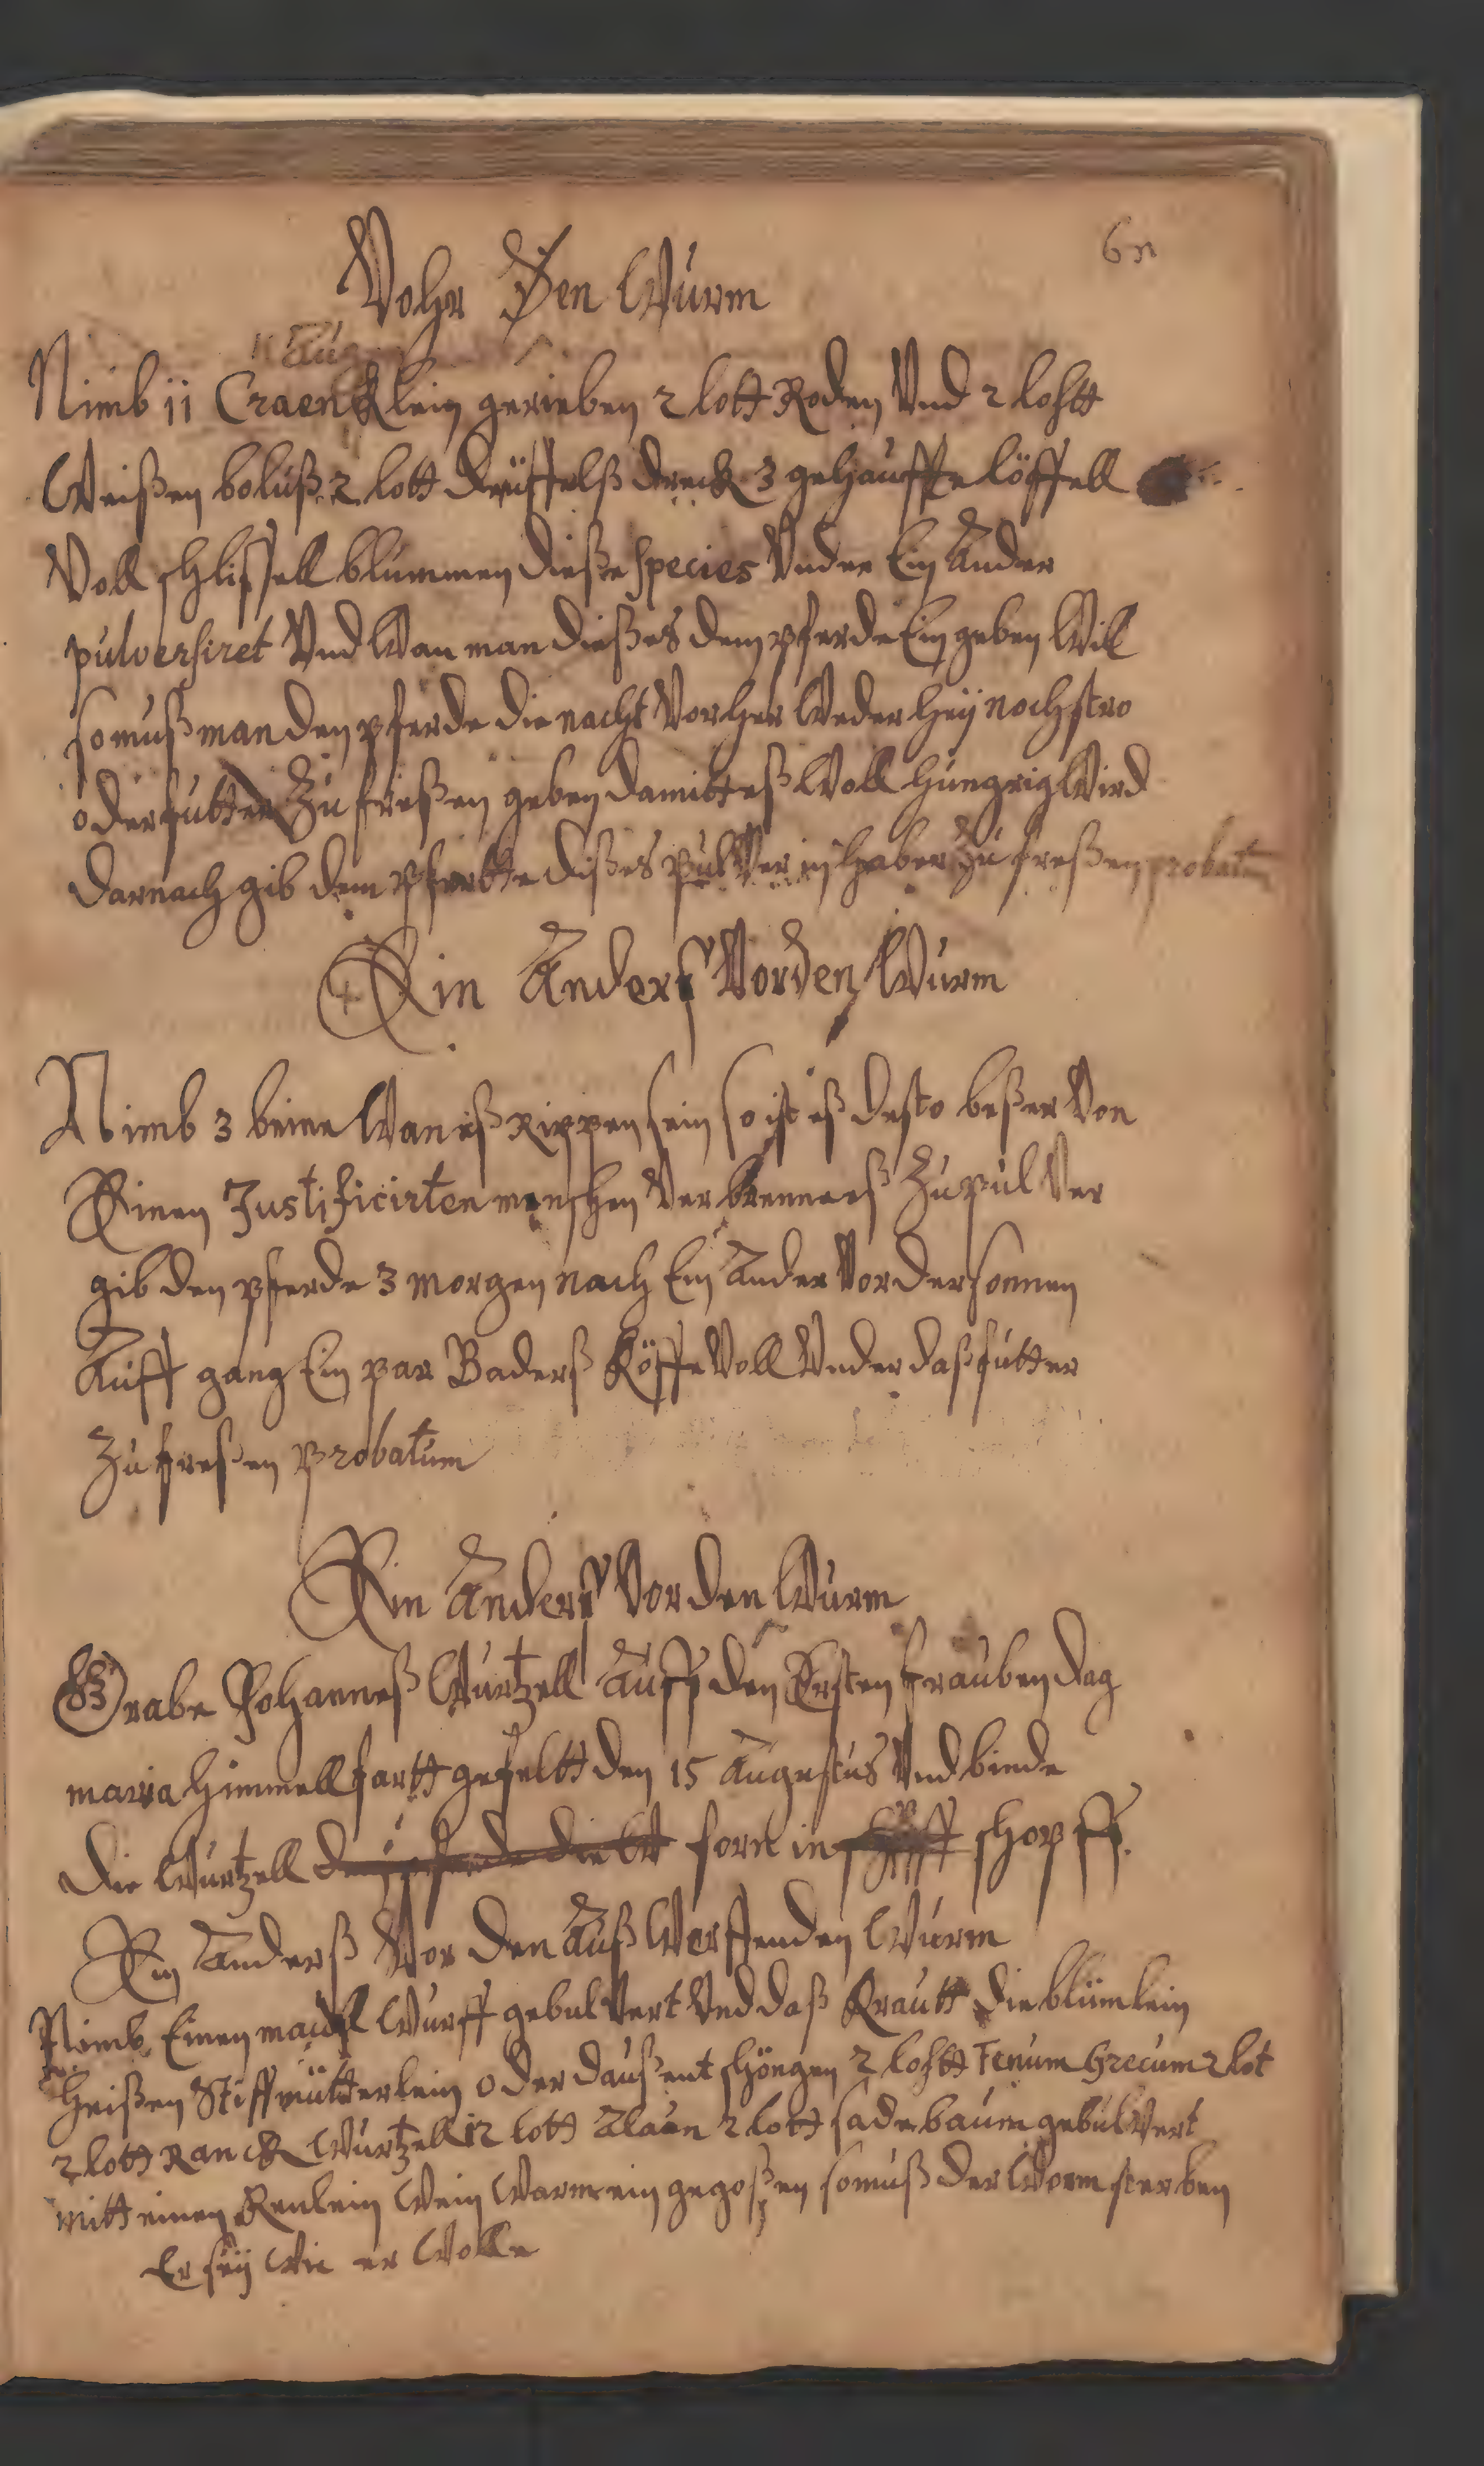 60
Vohr Den Wurm
Aug
Nimb 11 Craen klein gerieben 2 lott Roden Vnd 2 lohtt
Weißen boluß 2 lott deuffelß dreck 3 gehauffte löffell
Voll schlissell blummen dieße species Vnder Ein Ander
pulversiret Vnd Wan man dießes dem pferde Ein geben Will
so muß man den pferde die nacht Vorher Weder heÿ noch stro
oder futter Zu freßen geben damitt eß Woll hungrig Wird
darnach gib dem pfertte dißes pulVer in haber Zu freßen probatum
Ein Anderß Vor den Wurm
Nimb 3 beine Wan eß Rippen sein so ist eß desto beßer Von
Einen Justificirten menschen Verbrenneß Zu pulVer
gib den pferde 3 morgen nach Ein Ander Vor der sonnen
Auff gang Ein par Baderß Köffe Voll Vnder daß futter
Zu freßen probatum
Ein Anderß Vor den Wurm
Grabe Johanneß Wurtzell Auff den Ersten frauben dag
maria himmellfartt gefeltt den 15 Augustus Vnd binde
die Wurtzell forn in schopff.
Ein Anderß Vor den Auß Werffenden Wurm
Nimb Einen maull Wurff gebulVert Vnd daß Krautt die blümlein
heißen Stiffmütterlein oder daußent schöngen 2 lohtt Fenum Grecum 2 lot
2 lott Ranck Wurtzell 12 lott Alaun 2 lott sadebaum gebulVert
mitt einen Kenlein Wein Warm ein gegoßen so muß der Worm sterben
Er seÿ Wie er Wolle